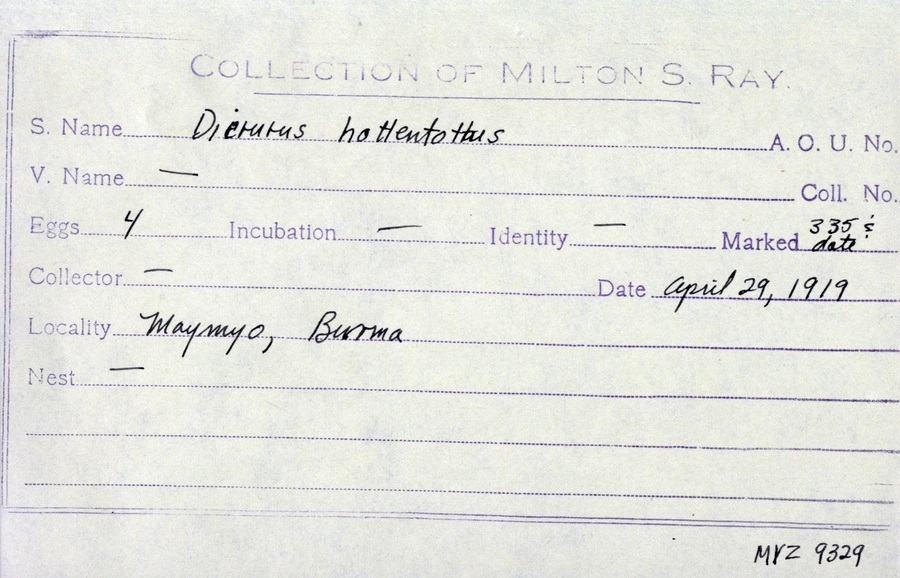 COLLECTION OF MILTON S. RAY.
S. Name Dicrurus hottentottus A. O. U. No.
V. Name — Coll. No.
Eggs 4 Incubation — Identity — Marked 335 & date
Collector — Date April 29, 1919
Locality Maymyo, Burma
Nest —
MVZ 9329